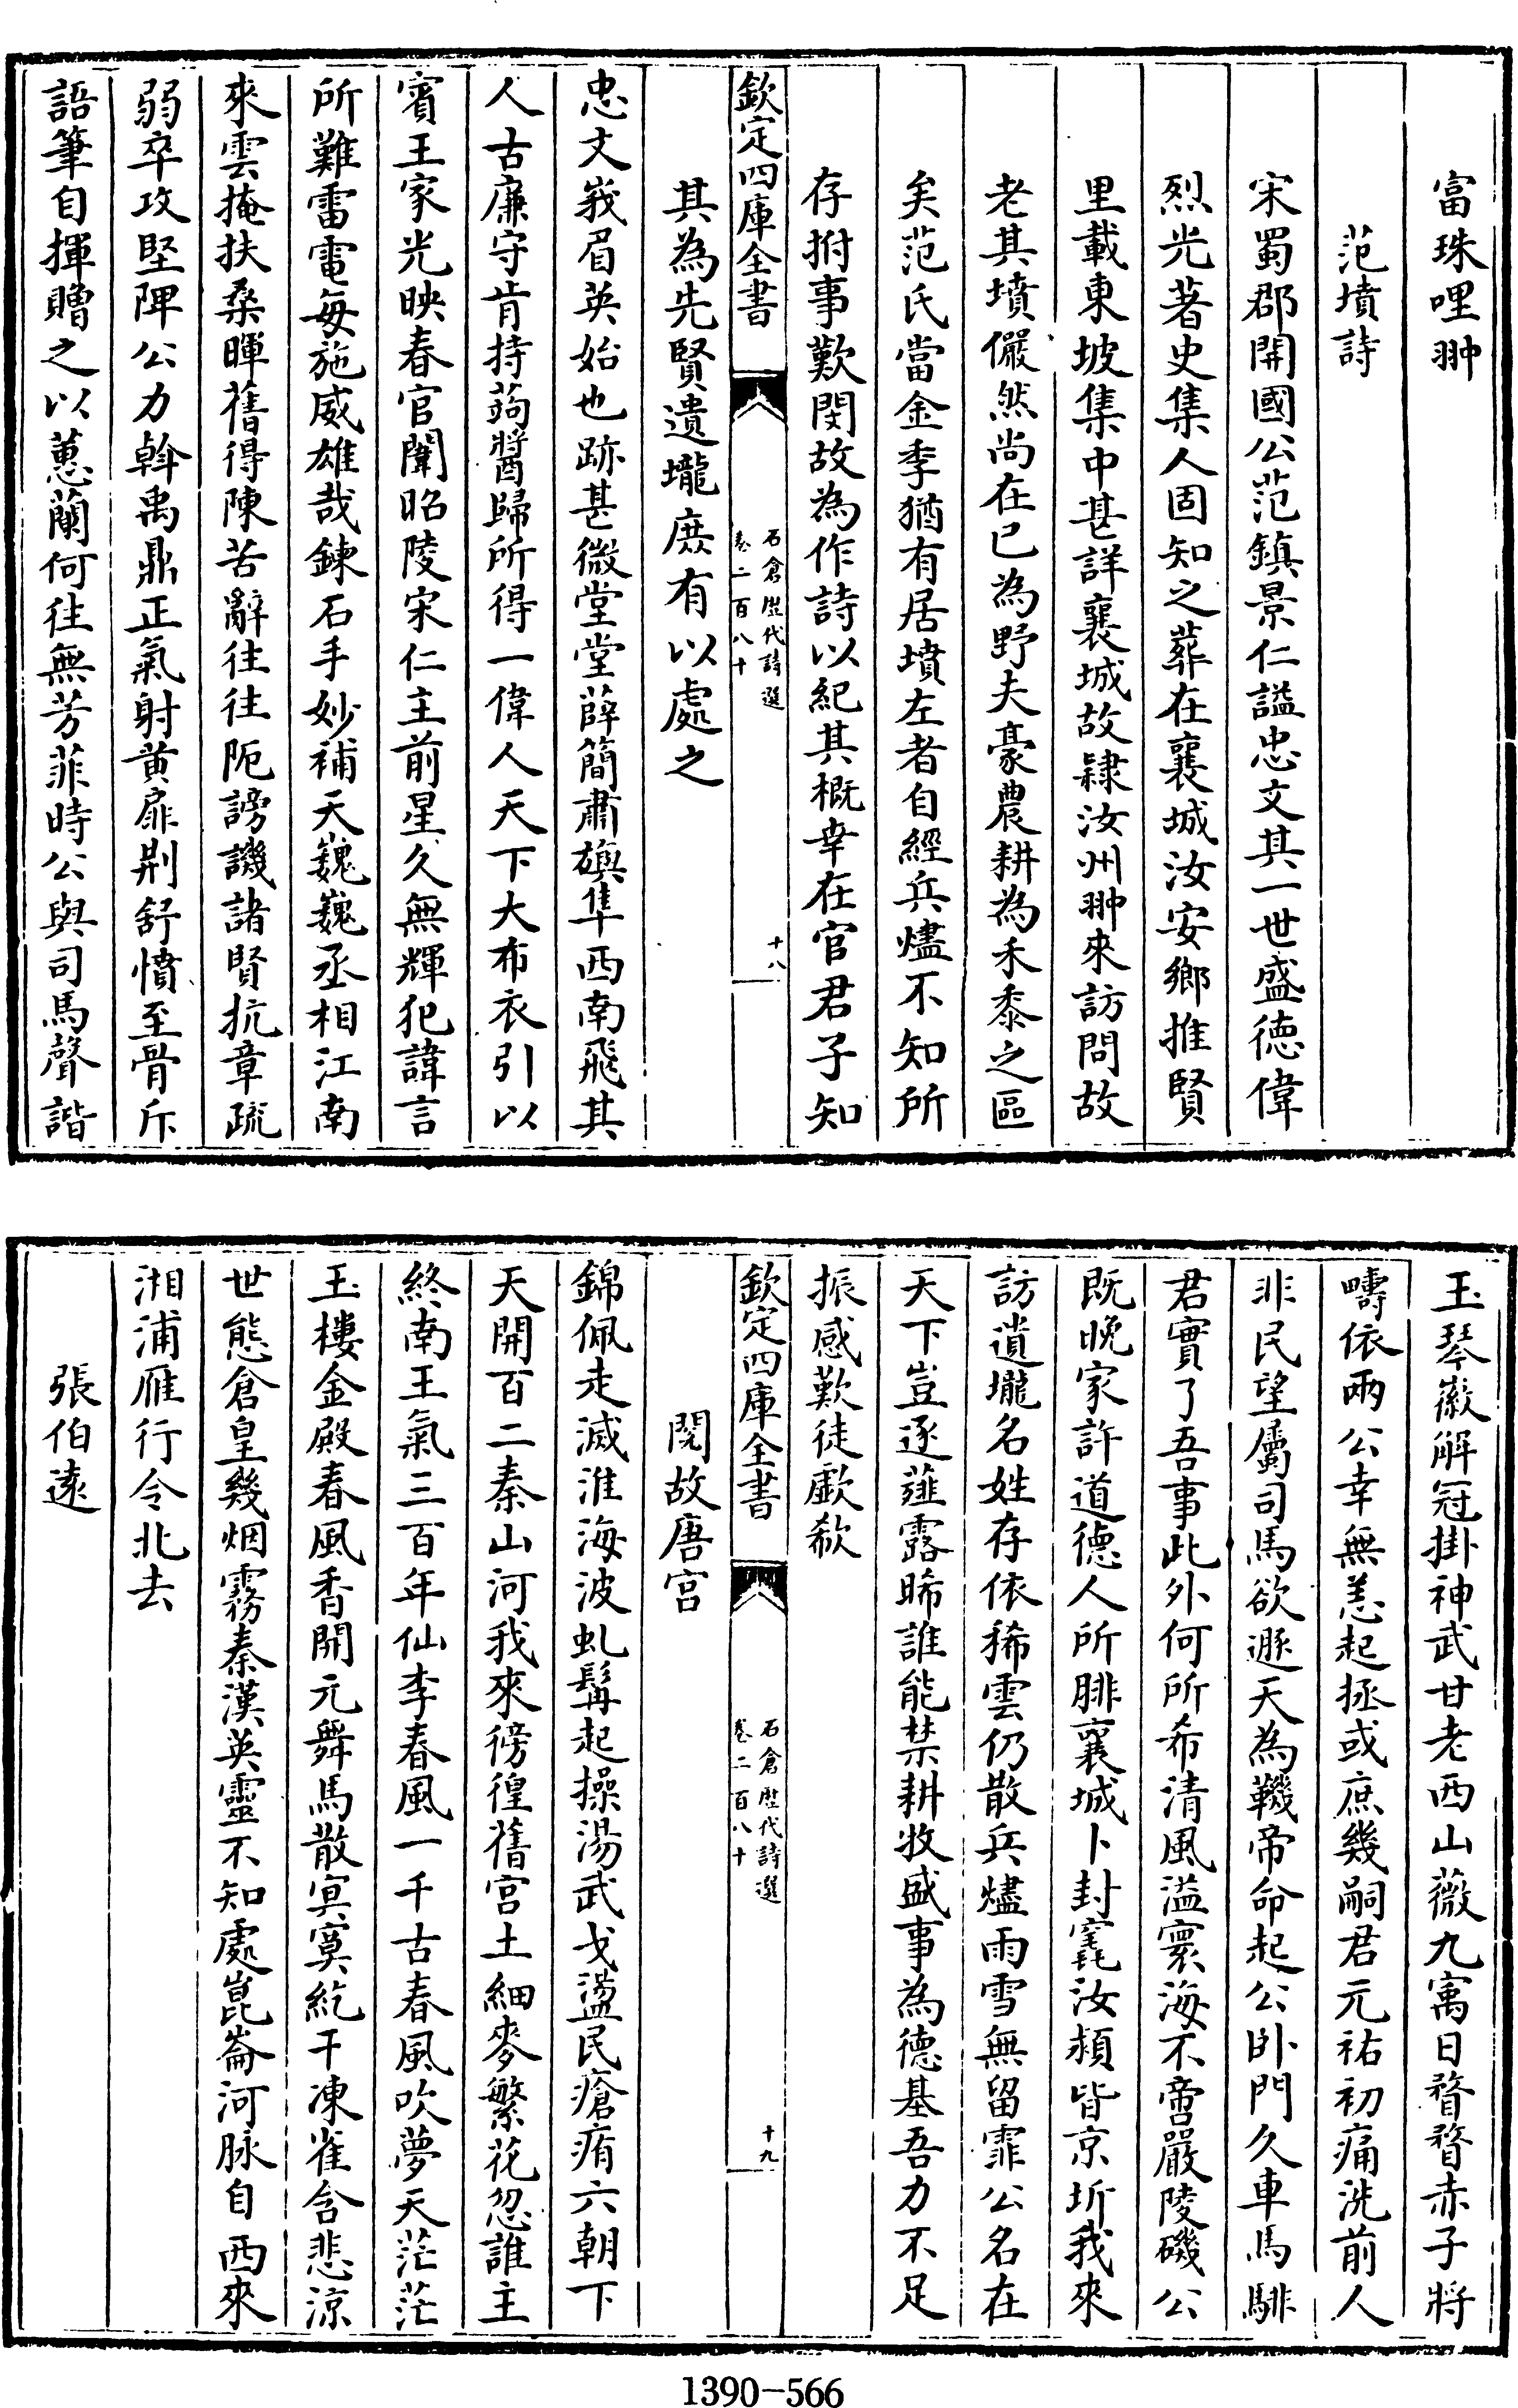 富珠哩翀
范墳詩
宋蜀郡開國公范鎮景仁謚忠文其一世盛德偉
烈光著史集人固知之葬在襄城汝安鄉推賢
里載東坡集中甚詳襄城故隸汝州翀來訪問故
老其墳儼然尚在已為野夫豪農耕為禾黍之區
矣范氏當金季猶有居墳左者自經兵燼不知所
存拊事歎閔故為作詩以紀其概幸在官君子知
其為先賢遺壠庶有以處之
欽定四庫全書
石倉歷代詩選
卷二百八十
十八
忠文峩眉英始也跡甚微堂堂薛簡肅旟隼西南飛其
人古廉守肯持蒟醬歸所得一偉人天下大布衣引以
賓王家光映春官闈昭陵宋仁主前星久無輝犯諱言
所難雷電每施威雄哉鍊石手妙補天巍巍丞相江南
來雲掩扶桑暉舊得陳苦辭往往阨謗譏諸賢抗章疏
弱卒攻堅陴公力斡禹鼎正氣射黄扉荆舒憤至骨斥
語筆自揮贈之以蕙蘭何往無芳菲時公與司馬聲諧
玉琴徽解冠掛神武甘老西山薇九寓日瞀瞀赤子將
疇依兩公幸無恙起拯或庶幾嗣君元祐初痛洗前人
非民望屬司馬欲遯天為鞿帝命起公卧門久車馬騑
君實了吾事此外何所希清風溢寰海不啻嚴陵磯公
既晚家許道德人所腓襄城卜封窀汝潁皆京圻我來
訪遺壠名姓存依稀雲仍散兵燼雨雪無留霏公名在
天下豈逐薤露晞誰能禁耕牧盛事為德基吾力不足
振感歎徒歔欷
欽定四庫全書
石倉歷代詩選
卷二百八十
十九
閱故唐宫
錦佩走滅淮海波虬髯起操湯武戈盪民瘡痏六朝下
天開百二秦山河我來徬徨舊宫土細麥繁花忽誰主
終南王氣三百年仙李春風一千古春風吹夢天茫茫
玉樓金殿春風香開元舞馬散寘寞紇干凍雀含悲涼
世態倉皇幾烟霧秦漢英靈不知處崑崙河脉自西來
湘浦雁行令北去
張伯遠
1390-566